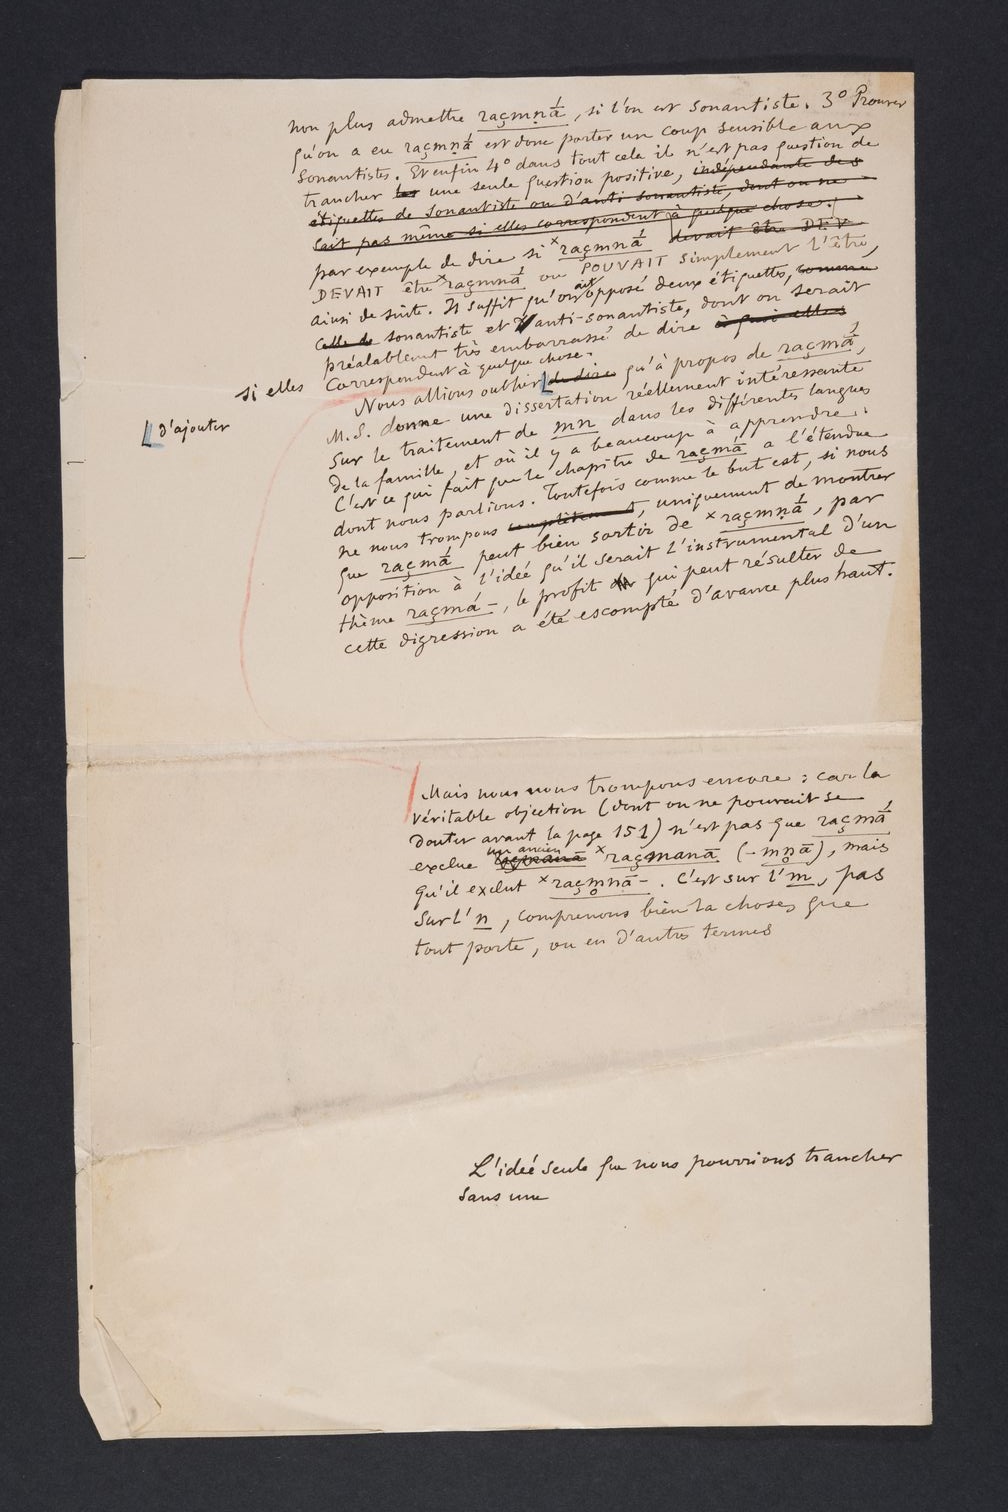 non plus admettre raçmṇā́, si l'on est sonantiste. 3º Prouver
qu'on a eu raçmṇā́ est donc porter un coup sensible aux
sonantistes. Et enfin 4º dans tout cela il n'est pas question de
trancher les une seule question positive, indépendante des
étiquettes de sonantiste ou d'anti-sonantiste, dont on ne
sait pas même si elles correspondent à quelque chose.
par exemple de dire si ˣraçmnā́ devait être DEV
DEVAIT être ˣraçmnā́ ou POUVAIT simplement l'être,
ainsi de suite. Il suffit qu'on ait opposé deux étiquettes, comme
celle de sonantiste et d'anti-sonantiste, dont on serait
préalablement très embarrassé de dire à quoi elles
si elles correspondent à quelque chose.
Nous allions oublier de dire qu'à propos de raçmā́,
d'ajouter
M.S. donne une dissertation réellement intéressante
sur le traitement de mn dans les différentes langues
de la famille, et où il y a beaucoup à apprendre.
C'est ce qui fait que le chapitre de raçmā́ a l'étendue
dont nous parlions. Toutefois comme le but est, si nous
ne nous trompons complètement, uniquement de montrer
que raçmā́ peut bien sortir de ˣraçmṇā́, par
opposition à l'idée qu'il serait l'instrumental d'un
thème raçmá-, le profit qui peut résulter de
cette digression a été escompté d'avance plus haut.
Mais nous nous trompons encore : car la
véritable objection (dont on ne pouvait se
douter avant la page 151) n'est pas que raçmā́
exclue un ancien ˣraçmanā (-mn̥ā), mais
qu'il exclut ˣraçm̥nā-. C'est sur l'm, pas
sur l'n, comprenons bien la chose, que
tout porte, ou en d'autres termes
L'idée seule que nous pourrions trancher
sans une